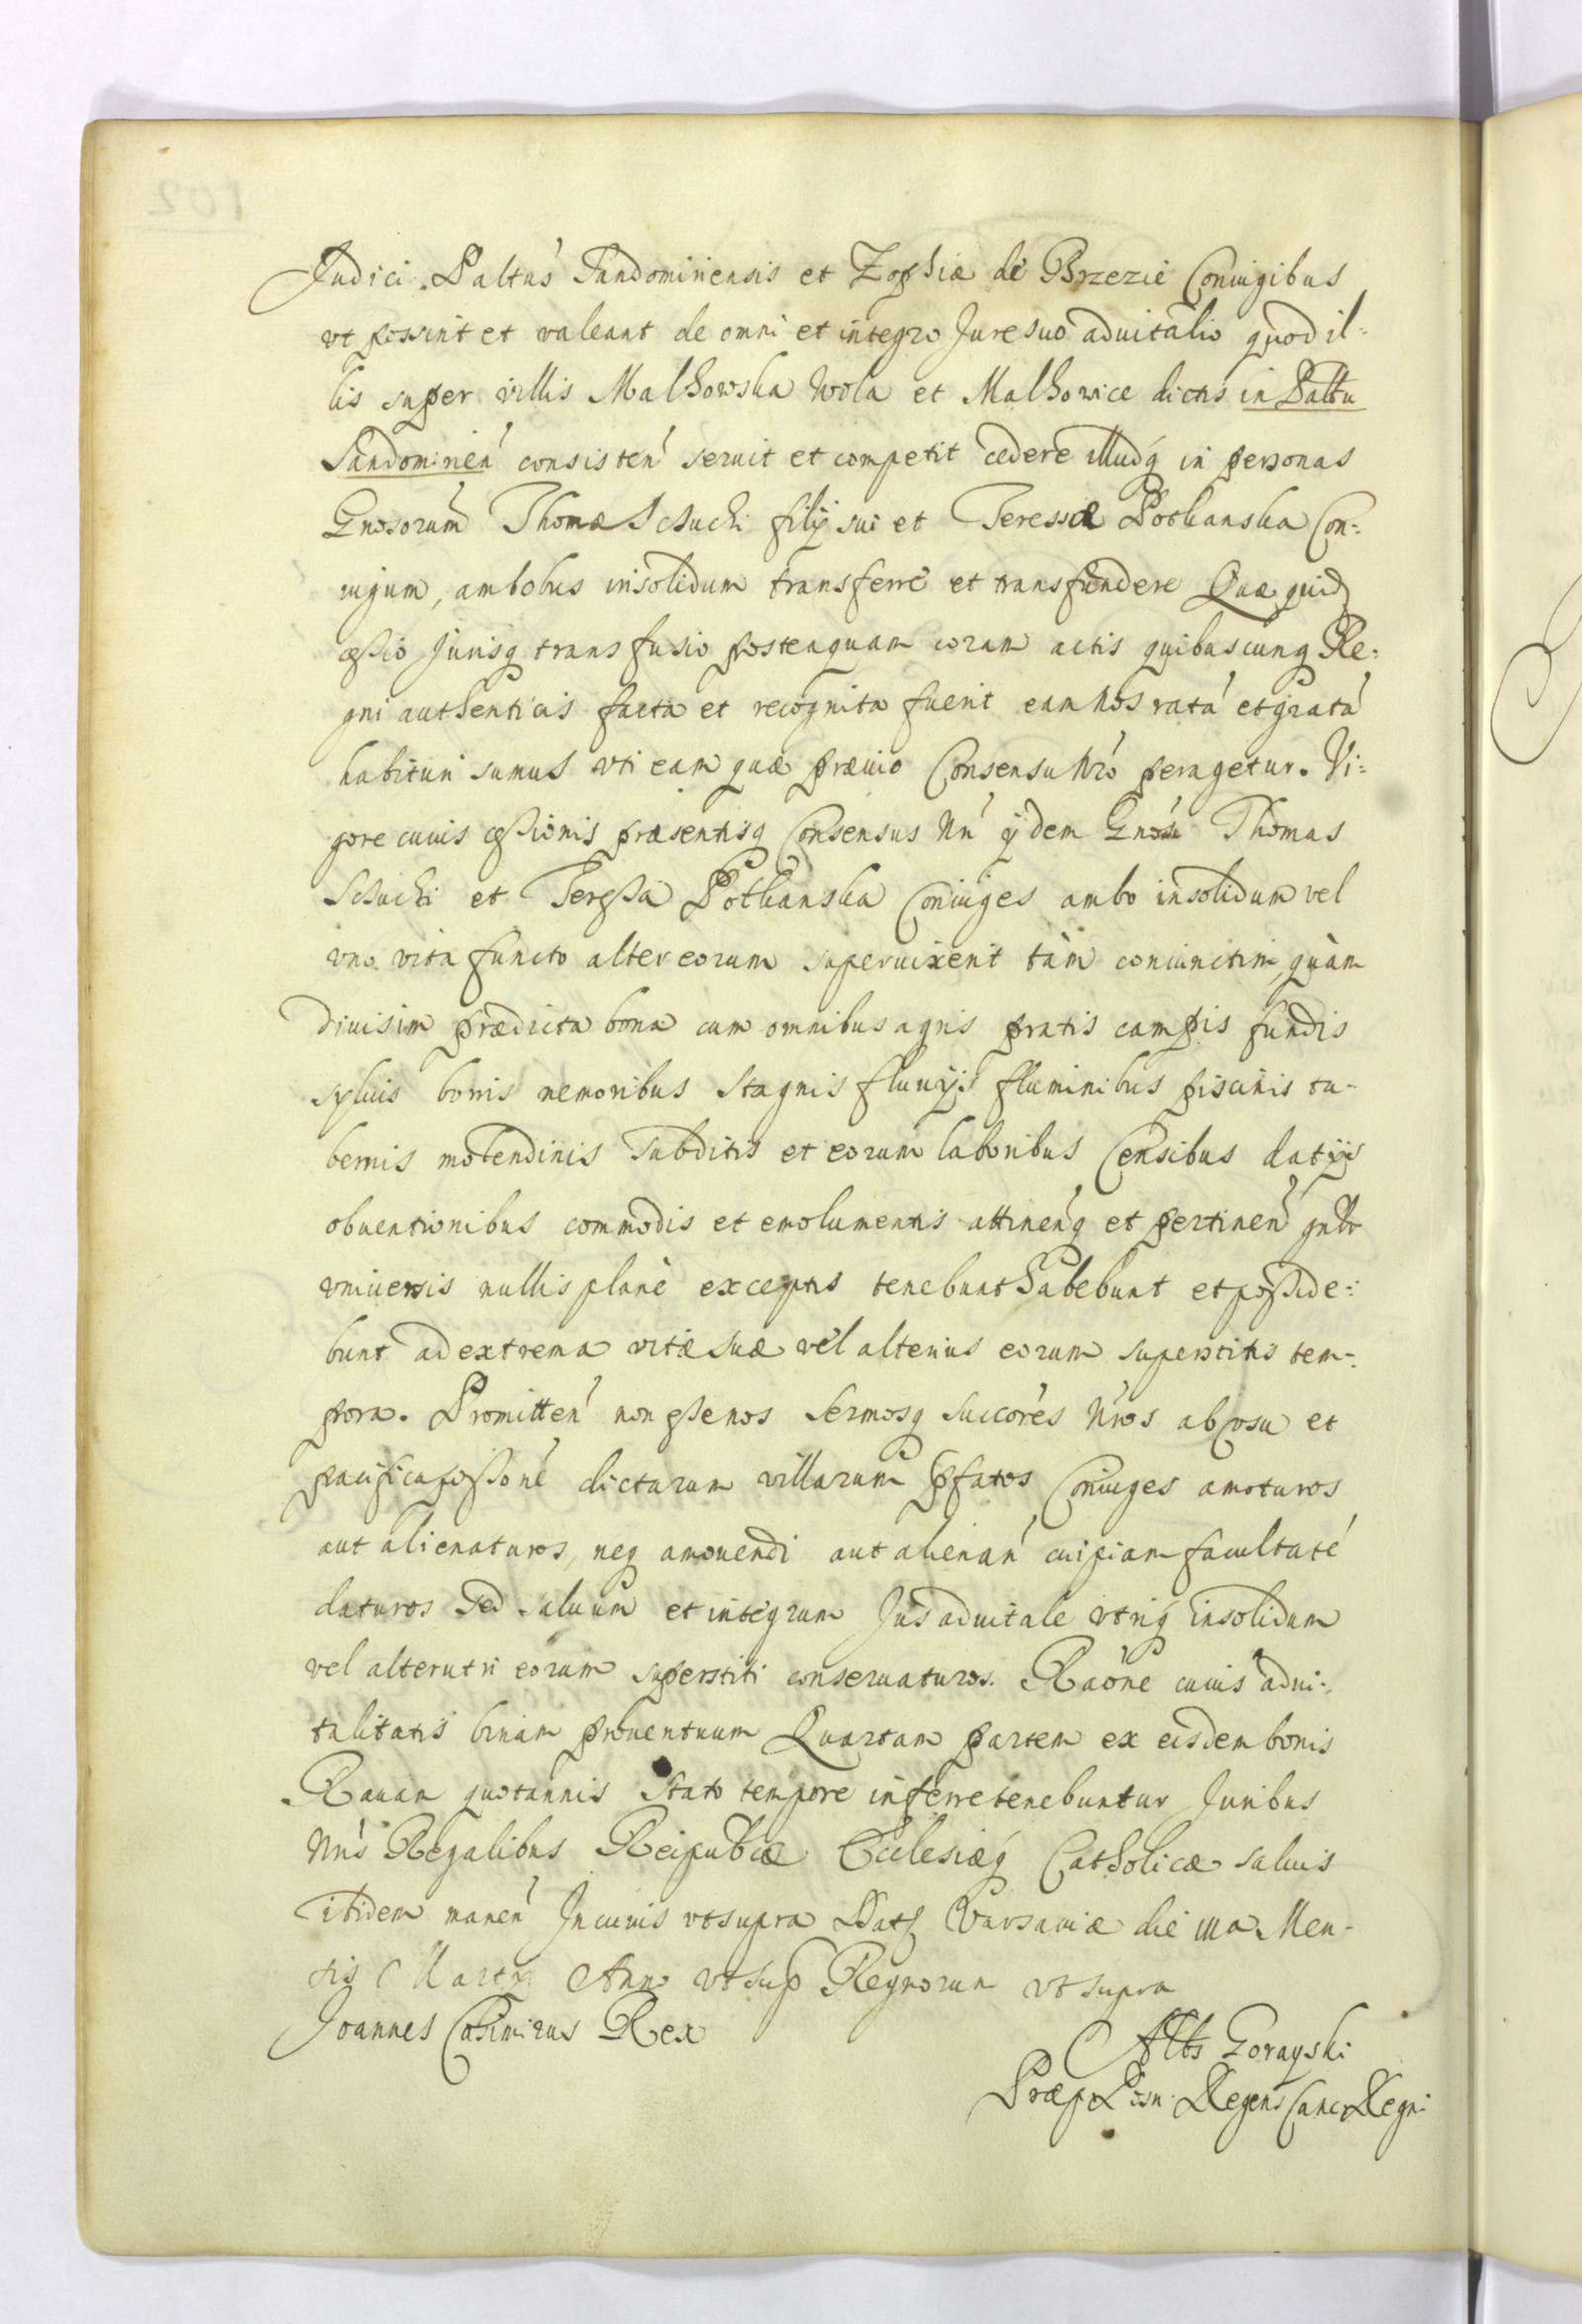 Judici Paltus Sandomiriensis et Zophiæ de Brzezie Coniugibus
vt possint et valeant de omni et integro Jure suo aduitalio quod il=
lis super villis Malhowska Wola et Malhowice dictis in Paltu
Sandomirień consisteń seruit et competit cedere illudq́ in personas
Gnosorum Thomæ Schucki filÿ sui et Teressæ Potkanska Con=
iugum, ambobus insolidum transferre et transfundere Quæ quid
cessio Jurisq transfusio posteaquam coram actis quibuscunq Re=
gni authenticis facta et recognita fuerit eam Nos ratá et gratá
habituri sumus vti eam quæ præuio Consensu Nró peragetur. Vi=
gore cuius cessionis præsentisq Consensus Nri ÿdem Gnosi Thomas
et Teressa Potkanska Coniuges ambo insolidum vel
vno vita functo alter eorum superuixerit tàm coniunctim quàm
diuisim prædicta bona cum omnibus agris pratis campis fundis
syluis borris nemoribus stagnis fluuÿs fluminibus piscinis ta-
bernis molendinis subditis et eorum laboribus Censibus datÿs
obuentionibus commodis et emolumentis attineńq et pertineń gnlr
vniuersis nullis planè exceptis tenebunt habebunt et posside=
bunt ad extrema vitæ suæ vel alterius eorum superstitis tem=
pora. Promitteń non esse nos Sermosq succorés Nros ab vsu et
pacifica possoné dictarum villarum pfatos Coniuges amoturos
aut alienaturos, neq amouendi aut alienań cuipiam facultaté
daturos sed saluum et integrum Jus aduitale vtriq́ insolidum
vel alterutri eorum superstiti conseruaturos. Raône cuius adui=
talitatis binam prouentuum Quartam partem ex eisdem bonis
Rauam quotannis stato tempore inferre tenebuntur Juribus
Nris Regalibus Reipublcæ Ecclesiæq́ Catholicæ saluis
ibidem maneń In cuius vt supra Dat Varsauiæ die Men-
sis Martÿ Anno vt sup Regnorum vt supra
Joannes Casimirus Rex
Albs Gorayski
Præp Posn Regens Canc Regni